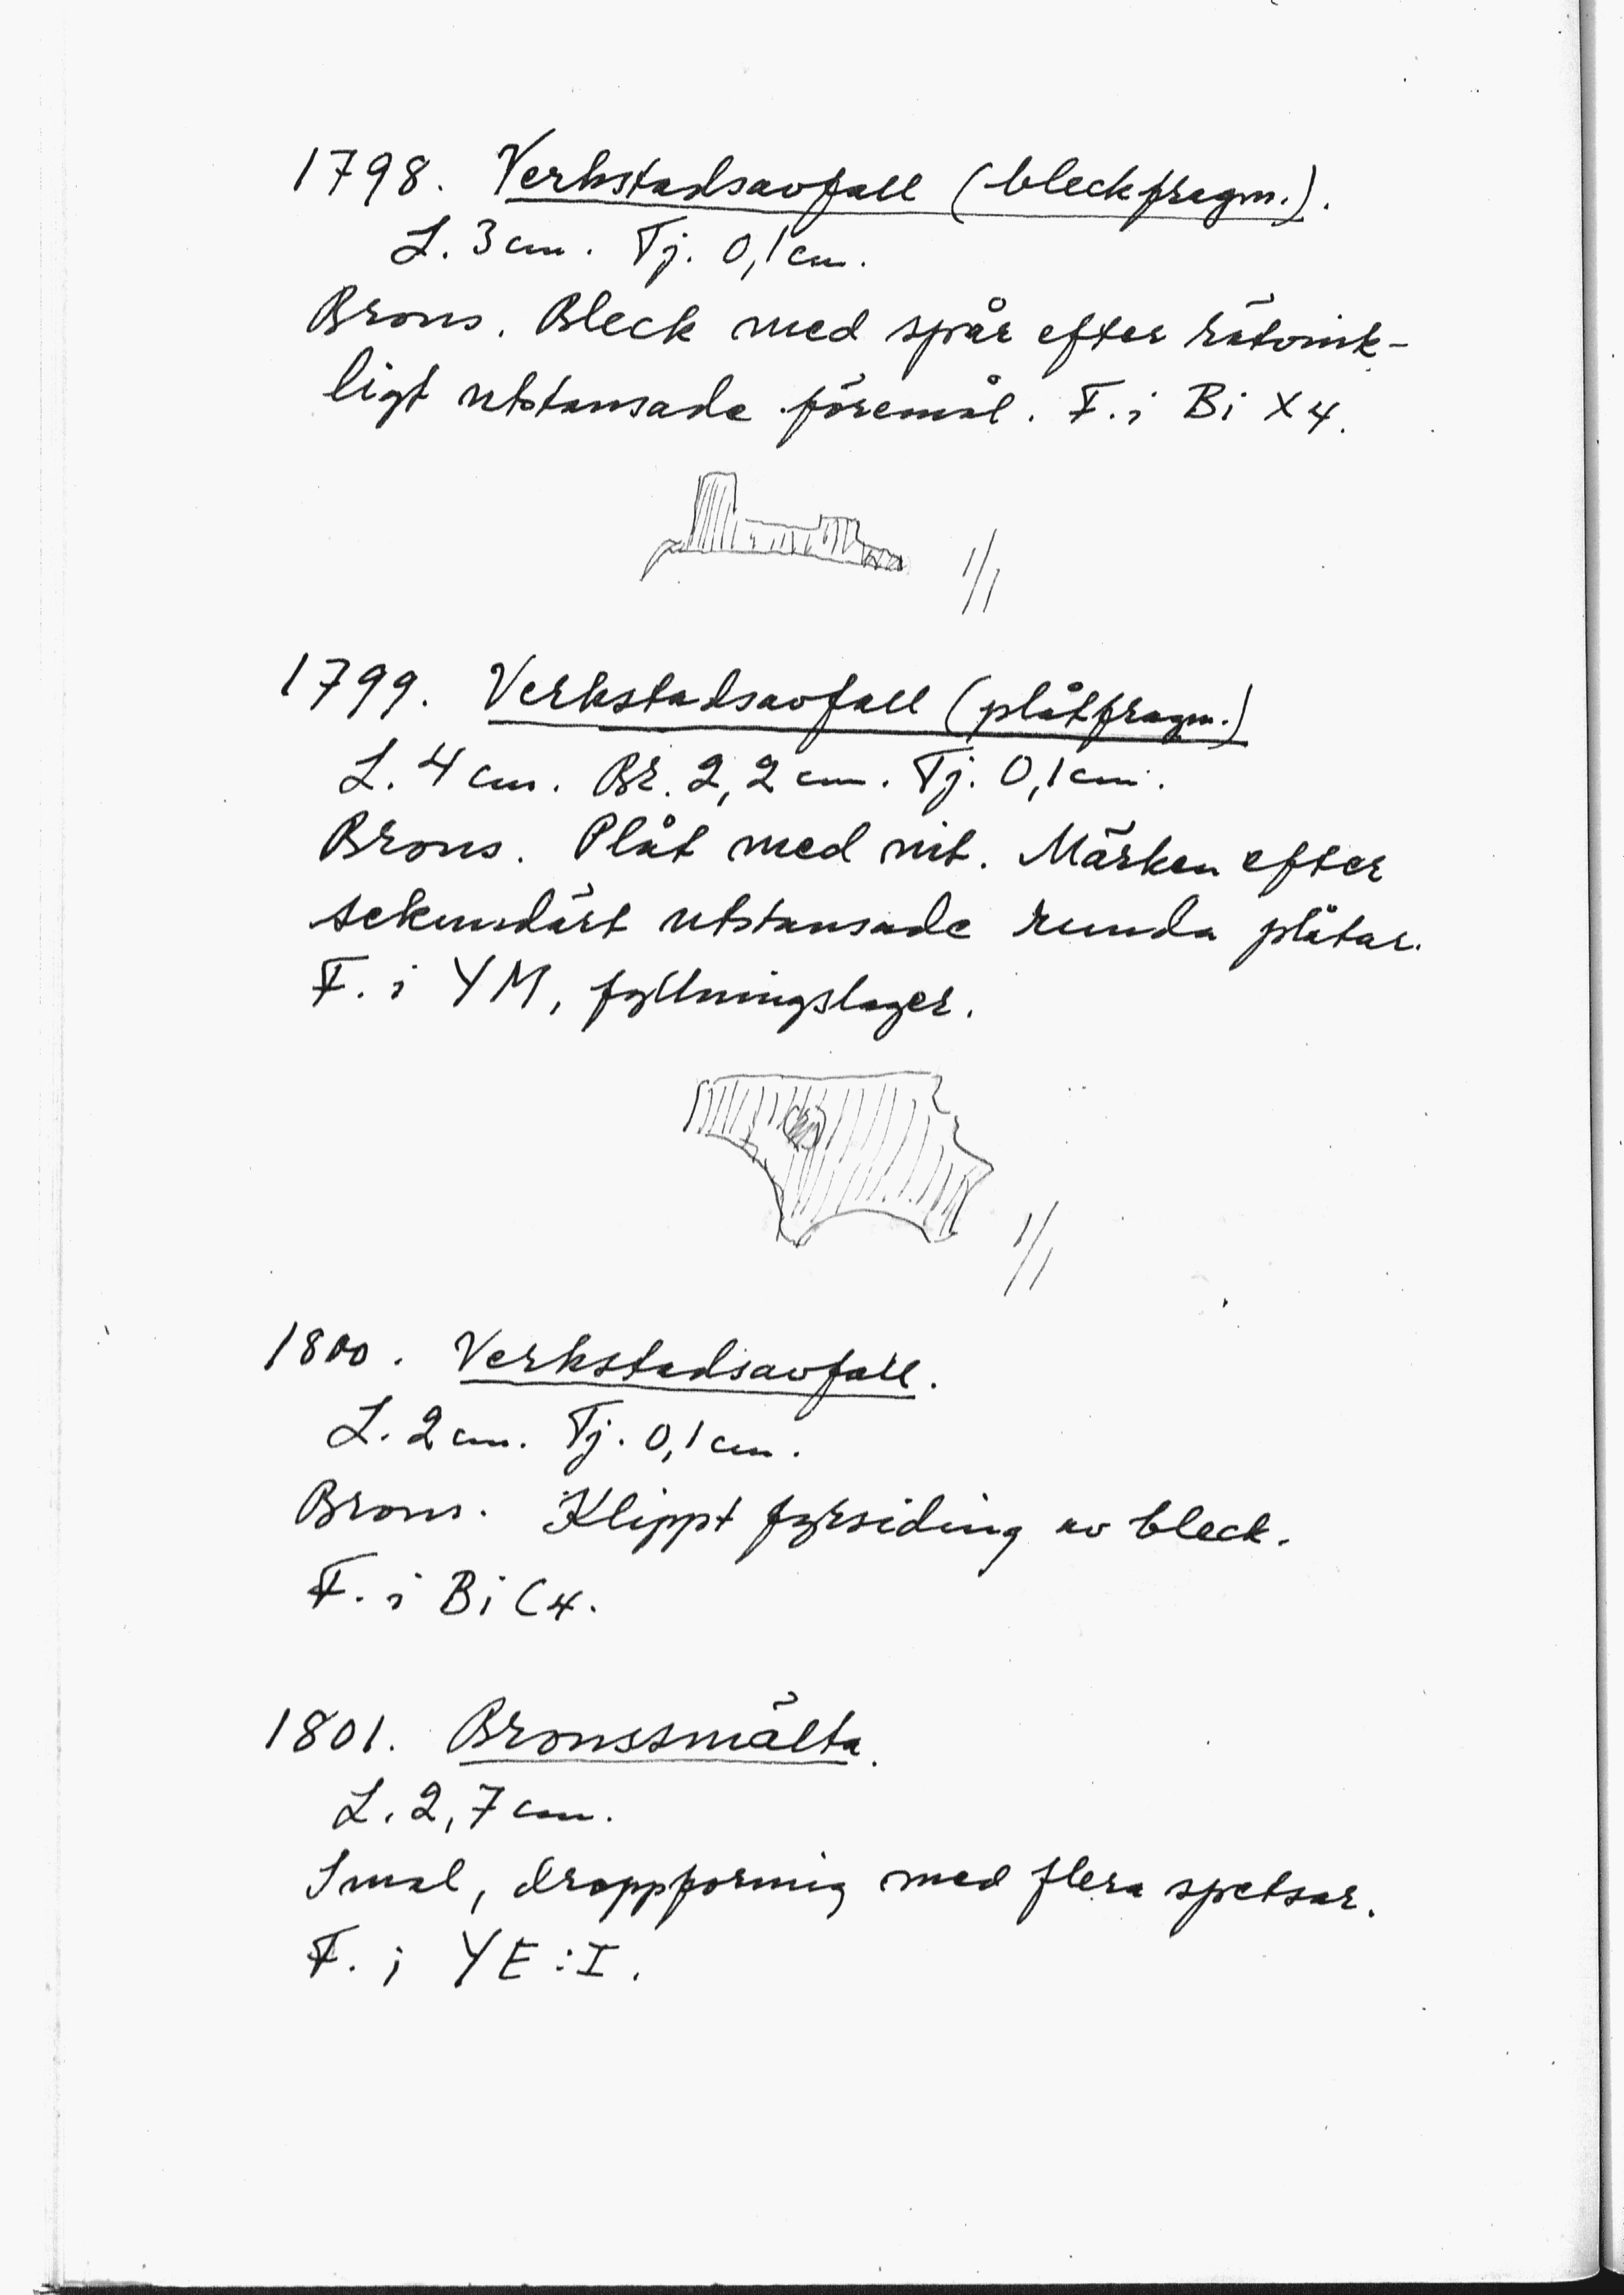 1798. Verkstadsavfall (bleckfragm.).
L. 3 cm. Tj. 0,1 cm.
Brons. Bleck med spår efter rätvink-
ligt utstansade föremål. F. i Bi X4.
1/1
1799. Verkstadsavfall (plåtfragm.)
L. 4 cm. Br. 2,2 cm. Tj. 0,1 cm.
Brons. Plåt med nit. Märken efter
sekundärt utstansade runda plåtar.
F. i YM, fyllningslager.
1/1
1800. Verkstadsavfall.
L. 2 cm. Tj. 0,1 cm.
Brons. Klippt fyrsiding av bleck.
F. i Bi C4.
1801. Bronssmälta.
L. 2,7 cm.
Smal, droppformig med flera spetsar.
F. i YE:I.